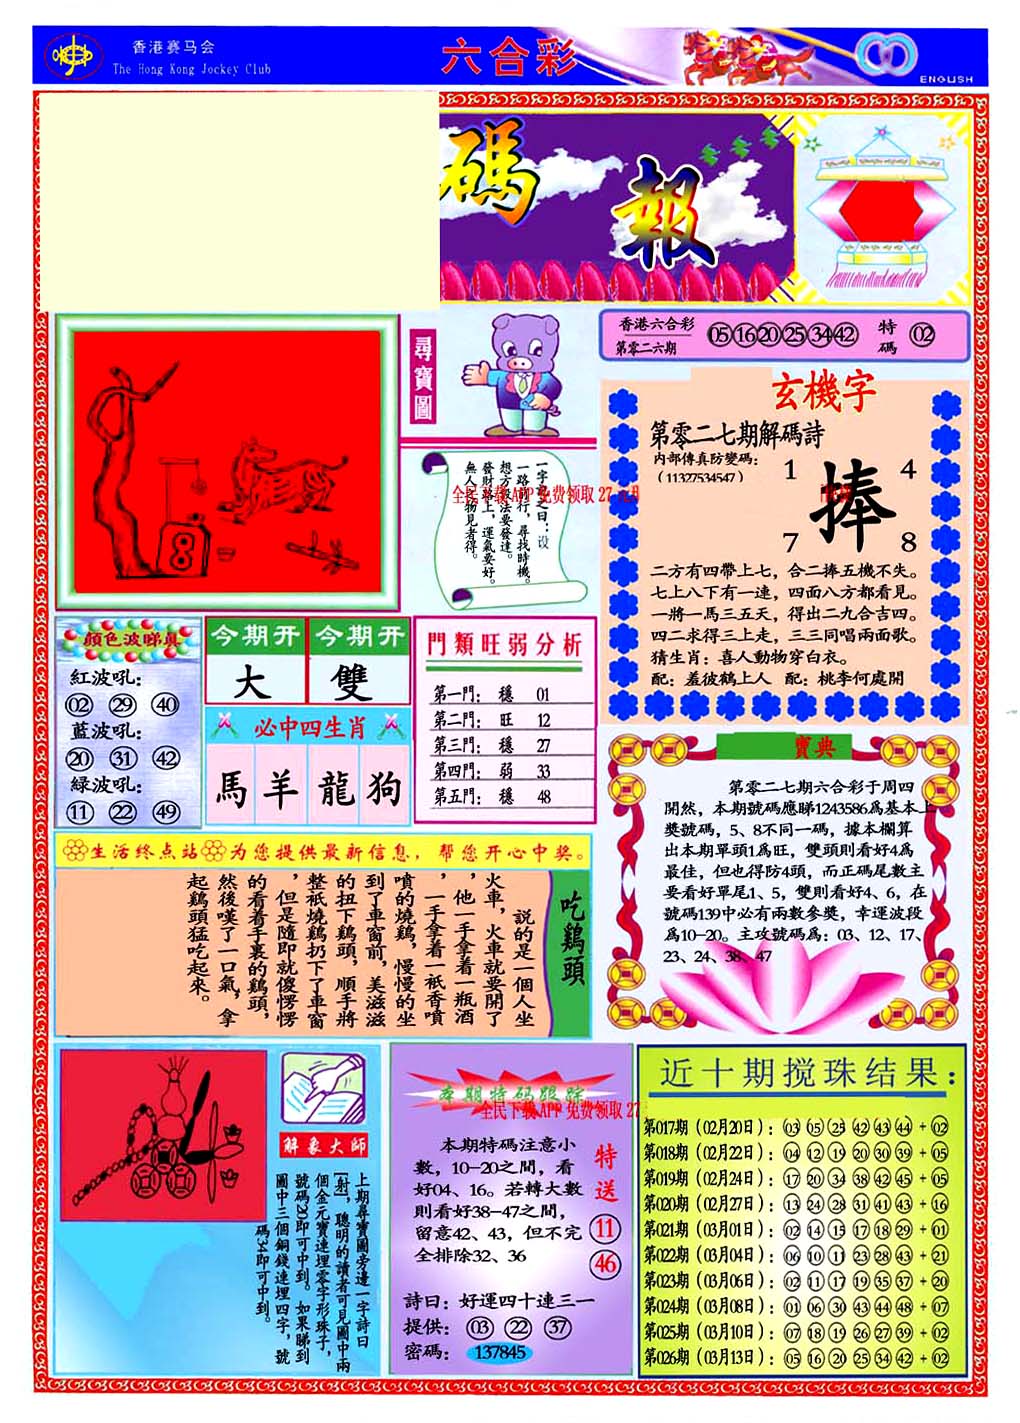 香港赛马会
The Hong Kong Jockey Club
六合彩
ENGLISH
碼報
尋寶圖
香港六合彩
第零二六期
05 16 20 25 34 42
特碼 02
玄機字
第零二七期解碼詩
内部傳真防變碼:
(11327534547)
1 4
捧
7 8
二方有四帶上七，合二捧五機不失。
七上八下有一連，四面八方都看見。
一將一馬三五天，得出二九合吉四。
四二求得三上走，三三同唱兩面歌。
猜生肖：喜人動物穿白衣。
配：羞彼鶴上人 配：桃李何處開
一字記之曰：设
一路前行，尋找時機。
想方設法要發達。
發財路上，運氣要好。
無人之物見者得。
全民下载APP 免费领取 27 元
顏色波睇真
紅波吼：
02 29 40
藍波吼：
20 31 42
綠波吼：
11 22 49
今期开 今期开
大 雙
必中四生肖
馬 羊 龍 狗
門類旺弱分析
第一門： 穩 01
第二門： 旺 12
第三門： 穩 27
第四門： 弱 33
第五門： 穩 48
寶典
第零二七期六合彩于周四
開然，本期號碼應睇1243586爲基本上
獎號碼，5、8不同一碼，據本欄算
出本期單頭1爲旺，雙頭則看好4爲
最佳，但也得防4頭，而正碼尾數主
要看好單尾1、5，雙則看好4、6，在
號碼139中必有兩數參獎，幸運波段
爲10-20。主攻號碼爲：03、12、17、
23、24、38、47
生活终点站 为您提供最新信息，帮您开心中奖。
吃鷄頭
説的是一個人坐
火車，火車就要開了
，他一手拿着一瓶酒
，一手拿着一衹香噴
噴的燒鷄，慢慢的坐
到了車窗前，美滋滋
的扭下鷄頭，順手將
整衹燒鷄扔下了車窗
，但是隨即就傻愣愣
的看着手裏的鷄頭，
然後嘆了一口氣，拿
起鷄頭猛吃起來。
解象大師
上期尋寶圖旁邊一字詩曰
[射]，聰明的讀者可見圖中兩
個金元寶連埋零字形珠子，
號碼20即可中到。如果睇到
圖中三個銅錢連埋四字，號
碼34即可中到。
本期特码跟踪
全民下载APP 免费领取 27
本期特碼注意小
數，10-20之間，看
好04、16。若轉大數
則看好38-47之間，
留意42、43，但不完
全排除32、36
特送
11
46
詩曰：好運四十連三一
提供： 03 22 37
密碼： 137845
近十期搅珠结果：
第017期（02月20日）：03 05 25 42 43 44 + 02
第018期（02月22日）：04 12 19 20 30 39 + 05
第019期（02月24日）：17 20 34 38 42 45 + 05
第020期（02月27日）：13 24 28 31 41 43 + 16
第021期（03月01日）：02 14 15 17 18 29 + 01
第022期（03月04日）：06 10 11 23 28 43 + 21
第023期（03月06日）：02 11 17 19 35 37 + 20
第024期（03月08日）：01 06 30 43 44 48 + 07
第025期（03月10日）：07 18 19 26 27 39 + 02
第026期（03月13日）：05 16 20 25 34 42 + 02